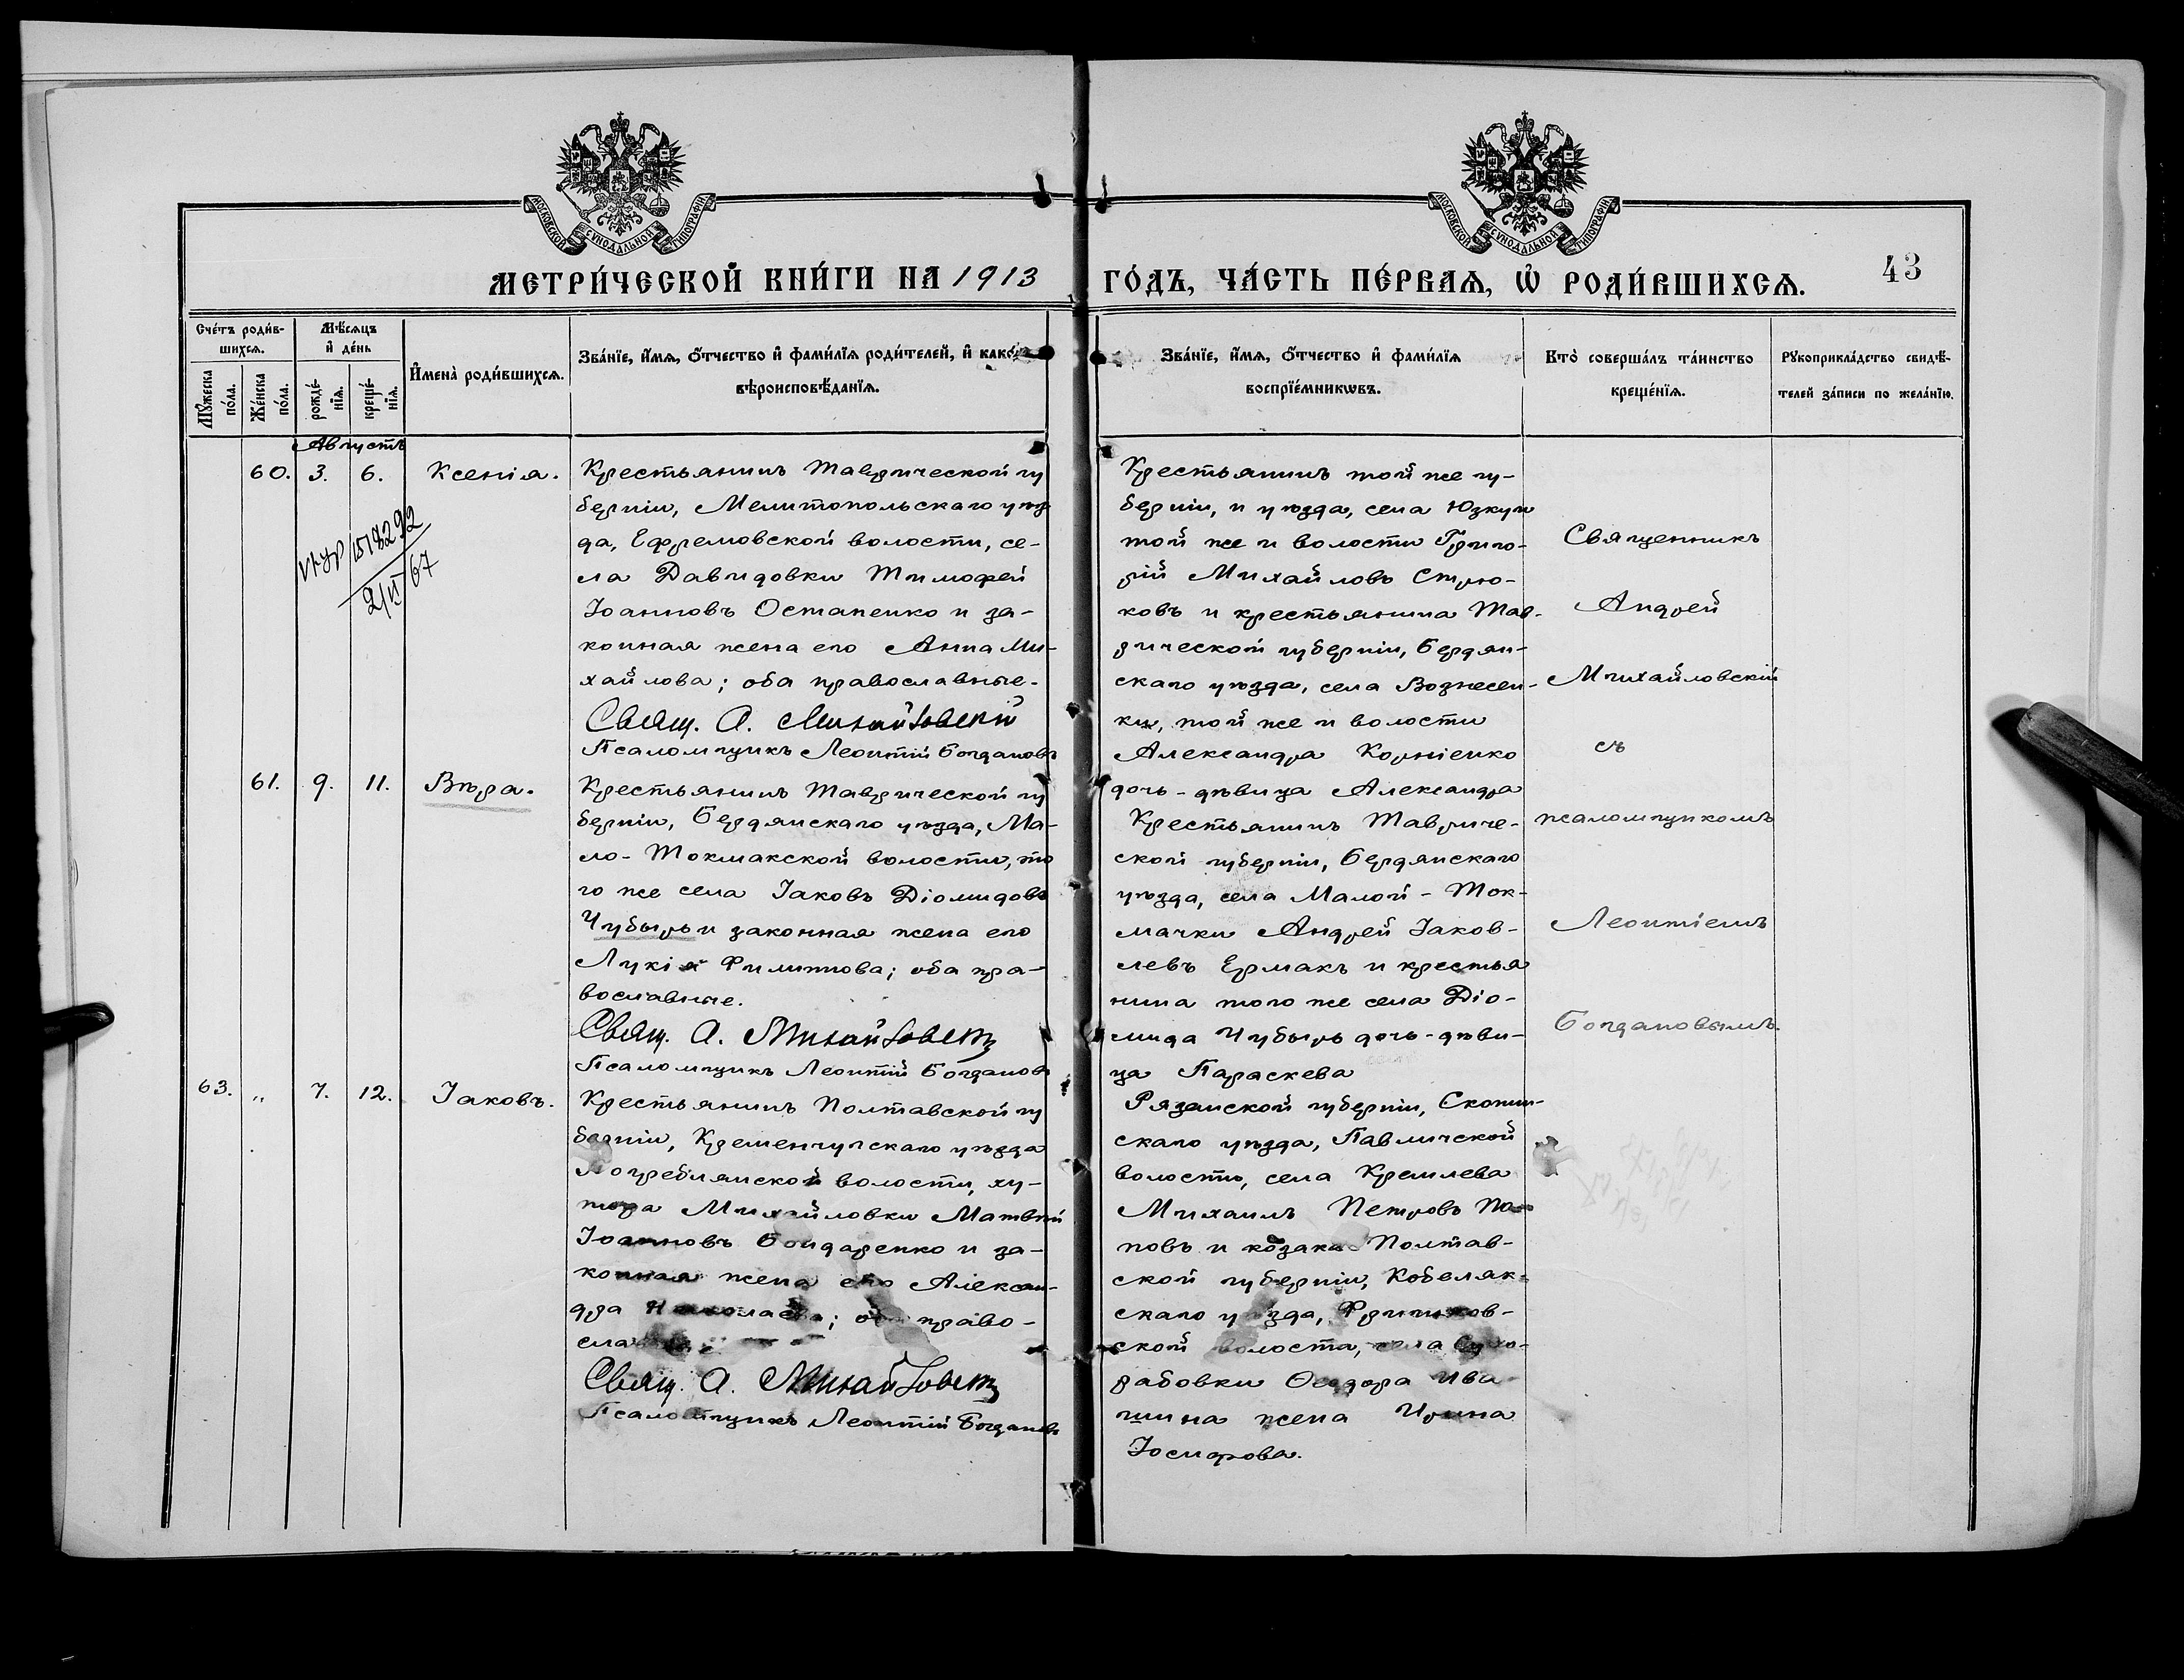 МОСКОВСКОЙ СѴНОДАЛЬНОЙ ТИПОГРАФІИ
МОСКОВСКОЙ СѴНОДАЛЬНОЙ ТИПОГРАФІИ
МЕТРИ́ЧЕСКОЙ КНИ́ГИ НА 1913 ГО́ДЪ, ЧА́СТЬ ПЕ́РВАѦ, Ѡ҆ РОДИ́ВШИХСѦ.
43
Сче́тъ роди́в-
шихсѧ.
Мѹжеска по́ла.
Же́нска по́ла.
Мѣ́сѧцъ
и҆ де́нь
рожде́-
нїѧ.
креще́-
нїѧ.
И҆мена̀ роди́вшихсѧ.
Зва́нїе, и҆́мѧ, ѻ҆́тчество и҆ фами́лїѧ роди́телей, и҆ како́
вѣроисповѣ́данїѧ.
Зва́нїе, и҆́мѧ, ѻ҆́тчество и҆ фами́лїѧ
воспрїе́мникѡвъ.
Кто̀ соверша́лъ та́инство
креще́нїѧ.
Рꙋкоприкла́дство свидѣ́-
телей за́писи по жела́нїю.
Августъ
60. 3. 6. Ксенія.
Крестьянинъ Таврической гу
берніи, Мелитопольскаго уѣз
да, Ефремовской волости, се-
ла Давидовки Тимофей
Іоанновъ Остапенко и за-
конная жена его Анна Ми-
хайлова; оба православные.
Свящ. А. Михайловскій
Псаломщикъ Леонтій Богдановъ
Крестьянинъ той же гу-
берніи, и уѣзда, села Юзкуи
той же и волости Григо-
рій Михайловъ Стрю-
ковъ и крестьянина Тав-
рической губерніи, Бердян-
скаго уѣзда, села Вознесен-
ки, той же и волости
Александра Корніенко
дочь-дѣвица Александра
61. 9. 11. Вѣра.
Крестьянинъ Таврической гу
берніи, Бердянскаго уѣзда, Ма-
ло-Токмакской волости, то
го же села Іаковъ Діомидовъ
Чубырь и законная жена его
Лукія Филиппова; оба пра-
вославные.
Свящ. А. Михайловскій
Псаломщикъ Леонтій Богдановъ
Крестьянинъ Тавриче-
ской губерніи, Бердянскаго
уѣзда, села Малой-Ток-
мачки Андрей Іаков-
левъ Ермакъ и крестья
нина того же села Діо-
мида Чубырь дочь-дѣви-
ца Параскева
63. „ 7. 12. Іаковъ.
Крестьянинъ Полтавской гу
берніи, Кременчугскаго уѣзда
Погреблянской волости, ху-
тора Михайловки Матвѣй
Іоанновъ Бондаренко и за-
конная жена его Алексан-
дра Николаева; оба право-
славные.
Свящ. А. Михайловскій
Псаломщикъ Леонтій Богдановъ
Рязанской губерніи, Скопин-
скаго уѣзда, Павлической
волости, села Кремлева
Михаилъ Петровъ По-
повъ и козака Полтав-
ской губерніи, Кобеляк-
скаго уѣзда,
ской волости, села Сухо-
рабовки Ѳеодора Ива
шина жена Ирина
Іосифова.
Священникъ
Андрей
Михайловскій
съ
псаломщикомъ
Леонтіемъ
Богдановымъ.